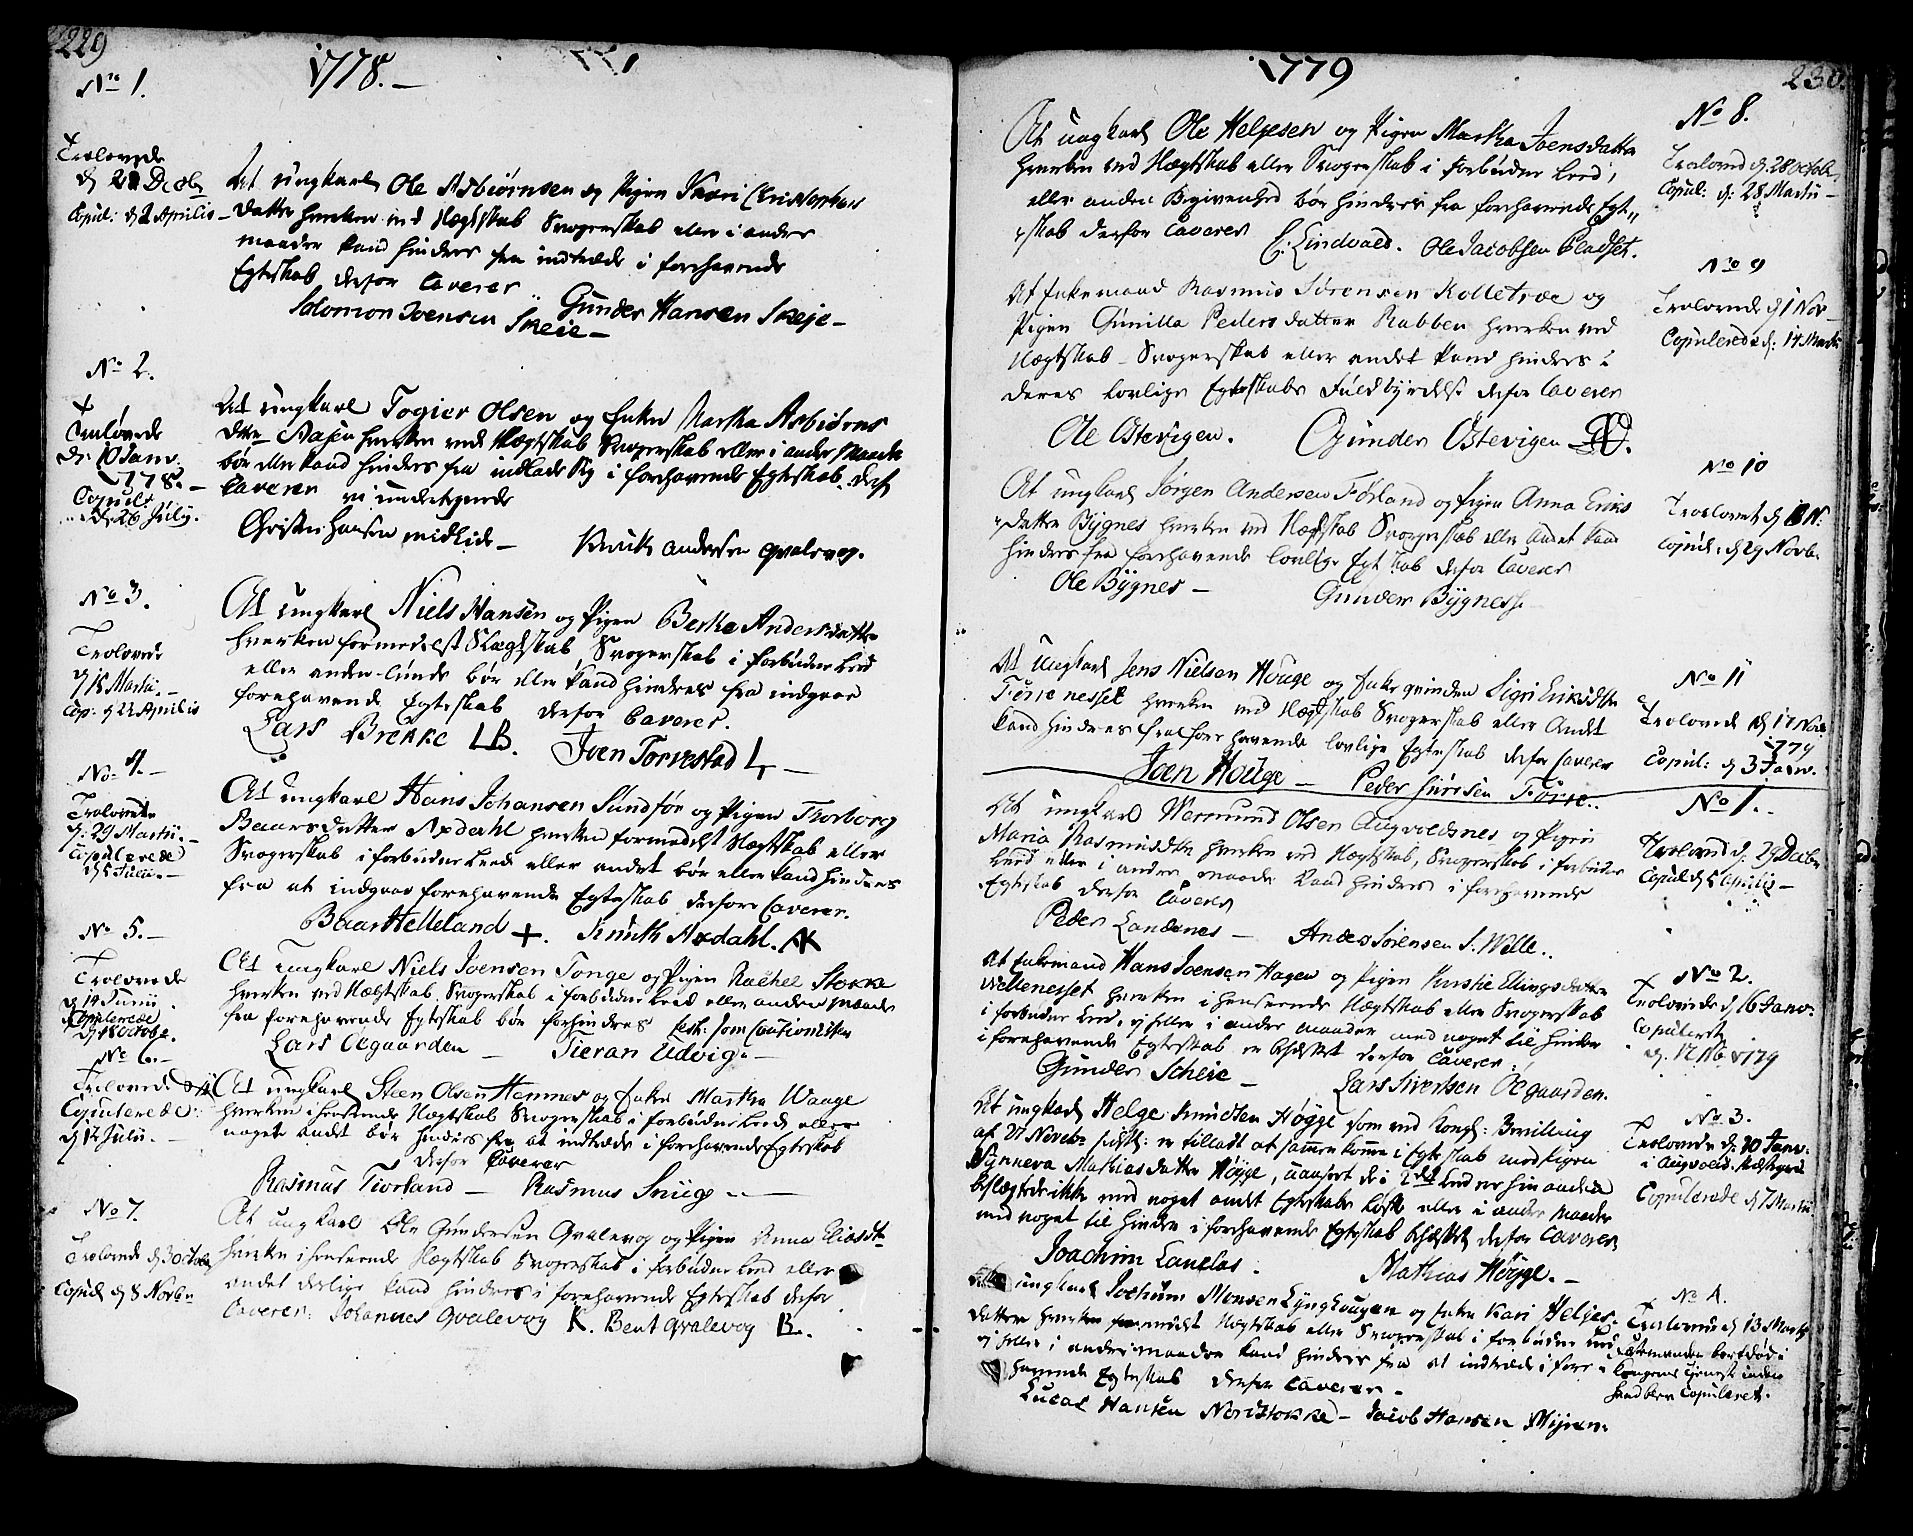 229
1778.
No 1.
Trolovede
d 28 Decbr
Copul: d 2 Aprilis
At ungkarl Ole Asbiørnsen og Pigen Kari Christophers
datter hverken ved Slægtskab Svogerskab eller i andre
maader kand hindres fra indtræde i forehavende
Egteskab derfor Caverer
Solomon Joensen Skeie Gunder Hansen Skeje
No 2.
Trolovede
d: 10 Janv.
1778.
Copul:
d: 26 July.
At ungkarl Togier Olsen og Enken Martha Asbiørns
dttr Aasen hverken ved Slægtskab Svogerskab eller i andre Maader
bør eller kand hindres fra indlade sig i forehavende Egteskab. derf
Caverer vi undertegnede
Christen Hansen Knuth Andersen Qvalevog.
No 3.
Trolovede
d 18 Martii.
Cop: d 22 Aprilis
At ungkarl Niels Hansen og Pigen Bertha Andersdatter
hverken formedelst Slægtskab, Svogerskab i forbudne Leed
eller anden-lunde bør eller kand hindres fra indgaae
forehavende Egteskab derfor Caverer.
Lars Brekke LB. Joen Torvestad
No. 4.
Trolovede
d: 29 Martii.
Copulerede
d 5 Julii.
At ungkarl Hans Johansen Sundfør og Pigen Thorborg
Baarsdatter Axdahl hverken formedelst Slægtskab eller
Svogerskab i forbudne Leed eller andet bør eller kand hindres
fra at indgaae forehavende Egteskab derfore Caverer.
Baar Helleland +. Knuth Axdahl. AK
No 5.
Trolovede
d 14 Junii
Copulerede
d 18 Octobr.
At ungkarl Niels Joensen Tonge og Pigen Rachel Storre
hverken ved Slægtskab, Svogerskab i forbudne Leed eller anden Maade
fra forehavende Egteskab bør forhindres test: som Cautionister
Lars Aagaarden Sieran Udvig.
No 6.
Trolovede
Copulerede
d 12 Julii.
At ungkarl Steen Olsen Hemnes og Enke Martha Waage
hverken i henseende Slægtskab Svogerskab i forbudne Leed eller
noget andet bør hindres fra at indtræde i forehavende Egteskab
derfor Caverer
Rasmus Tiorland Rasmus Sniig
No 7.
Trolovede d 3 Octobr
Copul d 8 Novbr
At ungkarl Ole Gundersen Qvalevog og Pigen Anna Eliasdtr
hverken i henseende Slægtskab Svogerskab i forbudne Leed eller
andet deslige kand hindres i forehavende Egteskab derfor
Caverer: Johannes Qvalevog K. Bent Qvalevog B.
1779
230.
At ungkarl Ole Helgesen og Pigen Martha Joensdatter
hverken ved Slægtskab eller Svogerskab i forbudne Leed,
eller anden Begivenhed bør hindres fra forehavende Egte
skab derfor Caverer C. Lindvald. Ole Jacobsen Pladset.
No 8.
Trolovede d 28 Octobr
Copul: d: 28 Martii
At Enkemand Rasmus Sørensen Kolletræe og
Pigen Gunilla Pedersdatter Rabben hverken ved
Slægtskab Svogerskab eller andet kand hindres i
deres lovlige Egteskabs Fuldbyrdelse derfor Caverer
Ole Ostevigen. Gunder Ostevigen
No 9
Trolovede d 1 Nov
Copulerede d: 14 Martii
At ungkarl Jørgen Andersen Førland og Pigen Anna Eriks
datter Bygnes hverken ved Slægtskab Svogerskab eller andet kand
hindres fra forehavende lovlige Egteskab derfor Caverer
Ole Bygnes Gunder Bygnes
No 10
Trolovet d N.
Copul: d 29 Novb.
At ungkarl Jens Nielsen Houge og Enkeqvinden Sigri Eriksdtr
Førrenesset hverken ved Slægtskab Svogerskab eller Andet
kand hindres fra forehavende lovlige Egteskab derfor Caverer
Joen Houge Peder Førre.
No 11
Trolovede d 17 Nov
1779
Copul: d 3 Janv.
At ungkarl Wermund Olsen Augvoldsnes og Pigen
Maria Rasmusdtr hverken ved Slægtskab, Svogerskab i forbudne
Leed eller i anden maade kand hindres i forehavende
Egteskab derfor Caverer
Peder Landenes Anders Sørensen S. Wille.
No 1.
Trolovede d: 29 Decbr
Copul d 5 Aprilis
At Enkemand Hans Joensen Hagen og Pigen Kirstie Ellingsdatter
Wellenesset hverken i henseende Slægtskab eller Svogerskab
i forbudne Leed, ej heller i andre maader med noget til Hinder
i forehavende Egteskab er behæftet derfor Caverer.
Gunder Scheie Lars Sivertsen Øegaarden.
No 2.
Trolovede d 16 Janv.
Copuleret
d: 1779
At ungkarl Helge Knudsen Høyge som ved Kongl: Bevilling
af 27 Novebr sidstl: er tilladt at sammenkomme i Egteskab med Pigen
Synneva Mathiasdatter Høyge, uanseet de i 2det Leed er hinanden
beslægtede ikke med noget andet Egteskabs løfte eller i andre Maader
med noget til hinder i forehavende Egteskab behæftet derfor Caverer
Joachim Lanclas. Mathias Høyge.
No 3.
Trolovede d: 20 Janv.
i Augvolds.
Copulerede d 7 Martii
ungkarl Jochum Monsen Lynghougen og Enke Kari Helges
datter hverken formedelst Slægtskab eller Svogerskab i forbudne Leed
ej heller i andre maader kand hindres fra at indtræde i fore
havende Egteskab derfor Caverer.
Lucas Hansen Nordstokke Jacob Hansen Myren.
No 4.
Trolovede d 13 Martii
bortdød i
Kongens Tieneste inden
hand blev Copuleret.